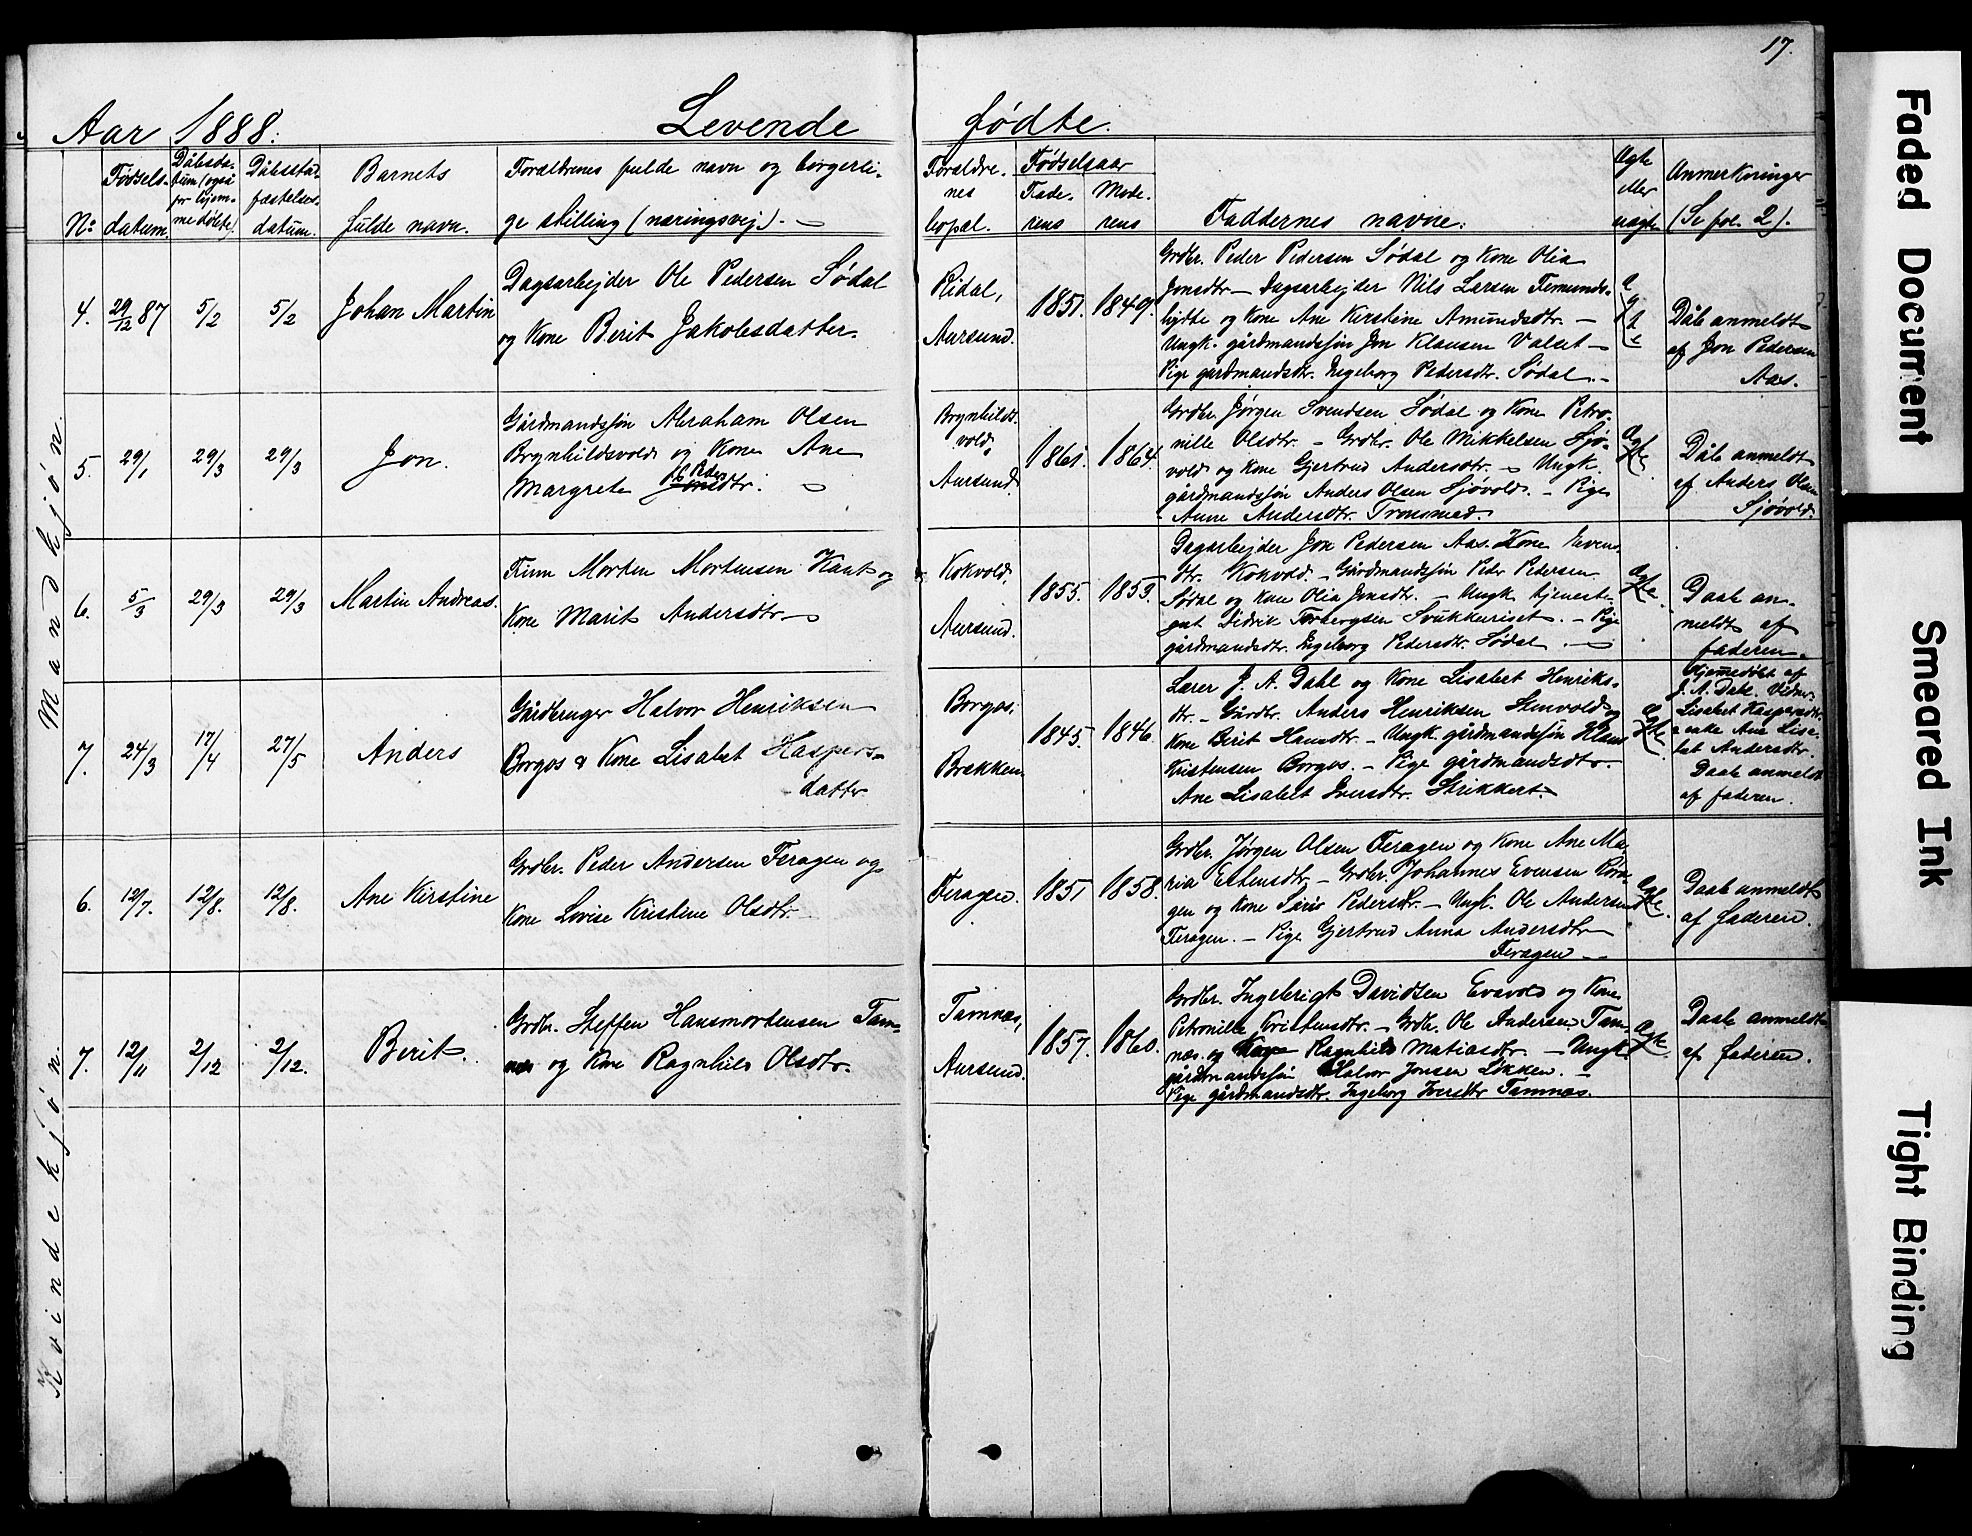 17.
Aar 1888. Levende fødte.
No
Fødsels-
datum.
Dåbsda-
tum (også
for hjem-
medøbte).
Dåbsstad-
fæstelses-
datum.
Barnets
fulde navn.
Forældrenes fulde navn og borgerli-
ge stilling (næringsvej). —
Forældre-
nes
bopæl.
Fødselsaar
Fade-
rens
Mode-
rens
Faddernes navne.
Ægte
eller
uægte
Anmerkninger
(Se fol. 2).
Mandkjøn.
4. 29/12 87 5/2 5/2 Johan Martin
Dagsarbejder Ole Pedersen Sødal
og Kone Berit Jakobsdatter.
Ridal,
Aursund.
1851. 1849.
Grdbr. Peder Pedersen Sødal og Kone Olia
Jonsdtr. — Dagsarbejder Nils Larsen Femunds-
hytte og Kone Ane Kirstine Amundsdtr. —
Ungk. gårdmandssøn Jon Klausen Valset —
Pige gårdmandsdtr. Ingeborg Pedersdtr. Sødal. —
Ægte
Dåb anmeldt
af Jon Pedersen
Aas.
5. 29/1 29/3 29/3 Jon.
Gårdmandssøn Abraham Olsen
Brynhildsvold og Kone Ane
Margrete Jonsdtr. —
Brynhilds-
vold,
Aursund.
1861. 1864.
Grdbr. Jørgen Svendsen Sødal og Kone Petro-
nille Olsdtr. — Grdbr. Ole Mikkelsen Sjø-
vold og Kone Gjertrud Andersdtr. — Ungk.
gårdmandssøn Anders Olsen Sjøvold. — Pige
Anne Andersdtr. Tronsmed.
Ægte.
Dåb anmeldt
af Anders Olsen
Sjøvold.
6. 5/3 29/3 29/3 Martin Andreas.
Morten Mortensen Kant og
Kone Marit Andersdtr. —
Kokvold,
Aursund.
1855. 1853.
Dagarbejder Jon Pedersen Aas. Kone Evens-
dtr. Kokvold. — Gårdmandssøn Peder Pedersen
Sødal og Kone Olia Jonsdtr. — Ungk. tjeneste-
gut Didrik Torbergsen Svukkuriset. — Pige
gårdmandsdtr. Ingeborg Pedersdtr. Sødal. —
Ægte.
Daab an-
meldt af
faderen.
7. 24/3 17/4 27/5 Anders
Gårdbruger Halvor Henriksen
Borgos & Kone Lisabet Kaspers-
datter.
Borgos,
Brækken.
1845. 1846.
Lærer J. A. Dahl og Kone Lisabet Henriks-
dtr. — Gårdbr. Anders Henriksen Stenvold og
Kone Berit Hansdtr. — Ungk. gårdmandssøn Klaus
Kristensen Borgos. — Pige gårdmandsdtr.
Ane Lisabet Iversdtr. Strikkert. —
Ægte.
Hjemmedøbt af
J. A. Dahl. Vidner
Lisabet Kaspersdtr.
enke Ane Lisa-
bet Andersdtr.
Daab anmeldt
af faderen.
Kvindekjøn.
6. 12/7. 12/8. 12/8. Ane Kirstine
Grdbr. Peder Andersen Feragen og
Kone Lovise Kristine Olsdtr.
Feragen.
1851 1858.
Grdbr. Jørgen Olsen Feragen og Kone Ane Ma-
ria Estensdtr. — Grdbr. Johannes Evensen
gen og Kone Siri Pedersdtr. — Ungk. Ole Andersen
Feragen. — Pige Gjertrud Anna Andersdtr.
Feragen. —
Ægte.
Daab anmeldt
af faderen.
7. 12/11 2/12 2/12. Berit.
Grdbr. Steffen Hansmortensen Tam-
næs og Kone Ragnhild Olsdtr.
Tamnæs,
Aursund.
1857. 1860.
Grdbr. Ingebrigt Davidsen Evavold og Kone
Petronille Kristensdtr. — Grdbr. Ole Andersen Tam-
næs og Kone Ragnhild Matiasdtr. — Ungk.
gårdmandssøn Halvor Jonsen Løkken. —
Pige gårdmandsdtr. Ingeborg Iversdtr. Tamnæs.
Ægte.
Daab anmeldt
af faderen.
Faded Document
Smeared Ink
Tight Binding